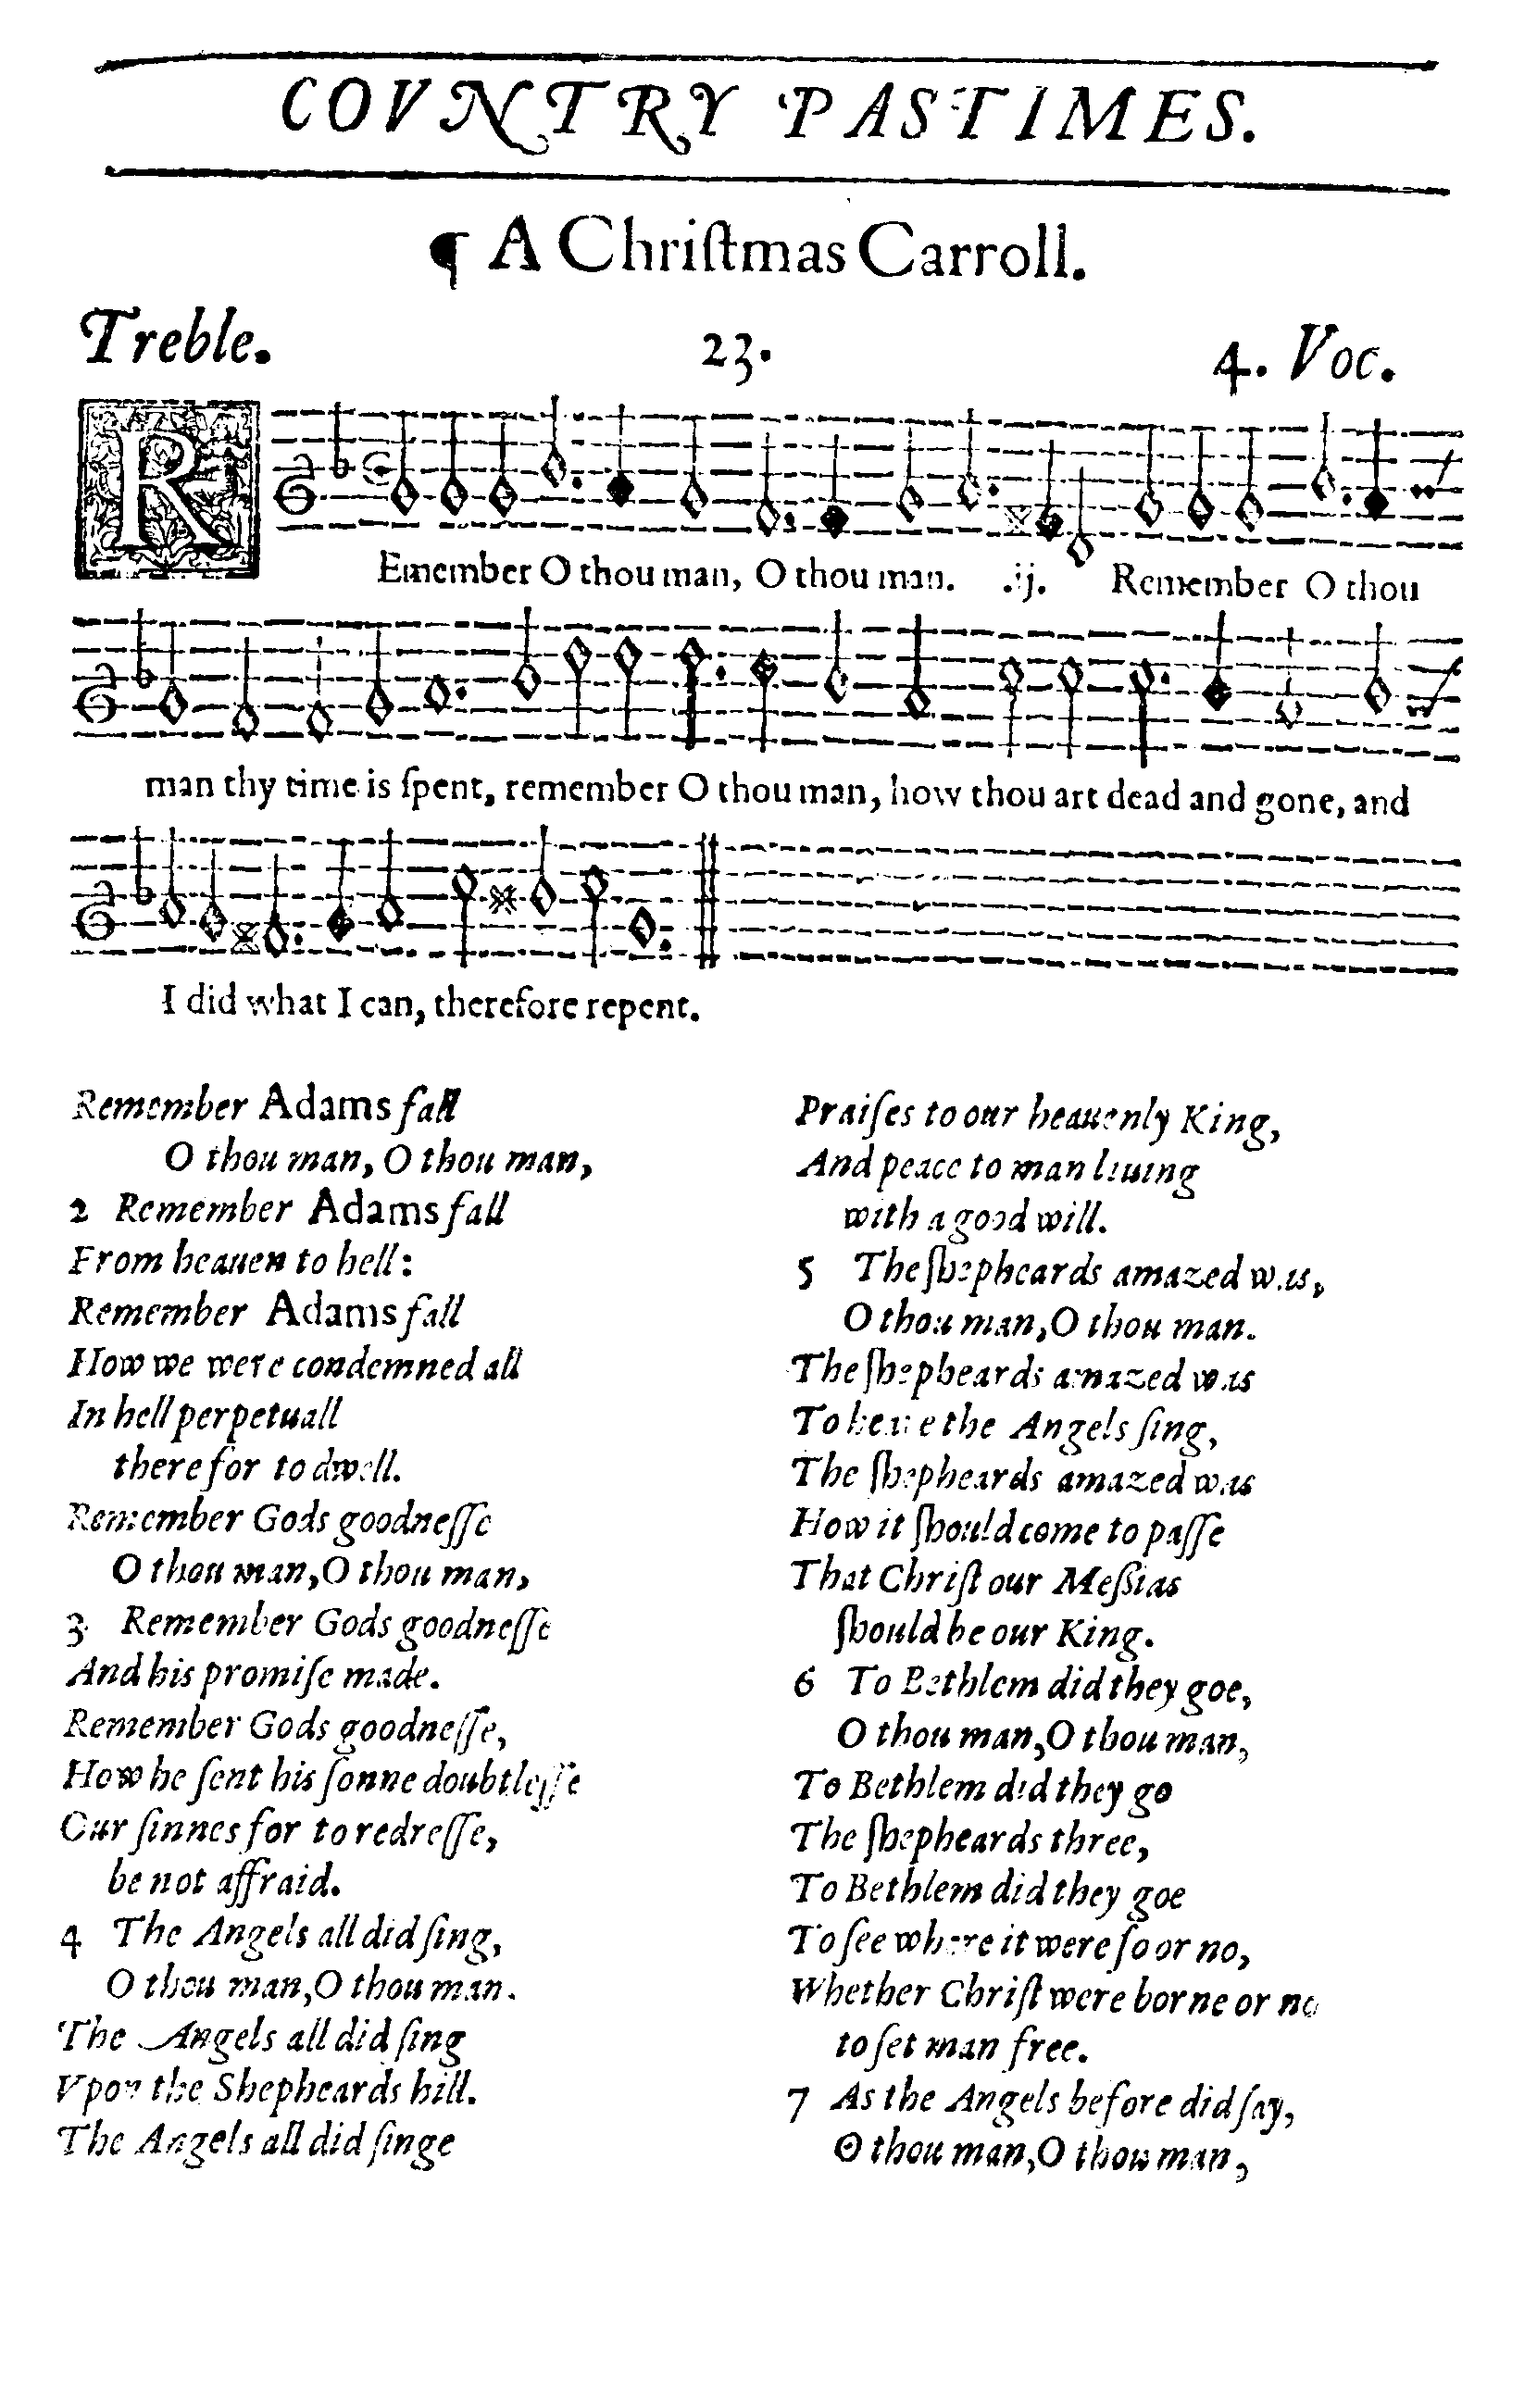 COVNTRY PASTIMES.
¶ A Chriſtmas Carroll.
Treble. 23. 4. Voc.
REmember O thou man, O thou man. .ij. Remember O thou
man thy time is ſpent, remember O thou man, how thou art dead and gone, and
I did what I can, therefore repent.
Remember Adams fall
O thou man, O thou man,
2 Remember Adams fall
From heauen to hell:
Remember Adams fall
How we were condemned all
In hell perpetuall
therefor to dwell.
Remember Gods goodneſſe
O thou man, O thou man,
3 Remember Gods goodneſſe
And his promiſe made.
Remember Gods goodneſſe,
How he ſent his ſonne doubtleſſe
Our ſinnes for to redreſſe,
be not affraid.
4 The Angels all did ſing,
O thou man, O thou man.
The Angels all did ſing
Vpon the Shepheards hill.
The Angels all did ſinge
Praiſes to our heauenly King,
And peace to man liuing
with a good will.
5 The ſhepheards amazed was,
O thou man, O thou man.
The ſhepheards amazed was
To heare the Angels ſing,
The ſhepheards amazed was
How it ſhould come to paſſe
That Chriſt our Meſſias
ſhould be our King.
6 To Bethlem did they goe,
O thou man, O thou man,
To Bethlem did they go
The ſhepheards three,
To Bethlem did they goe
To ſee where it were ſo or no,
Whether Chriſt were borne or no
to ſet man free.
7 As the Angels before did ſay,
O thou man, O thou man,